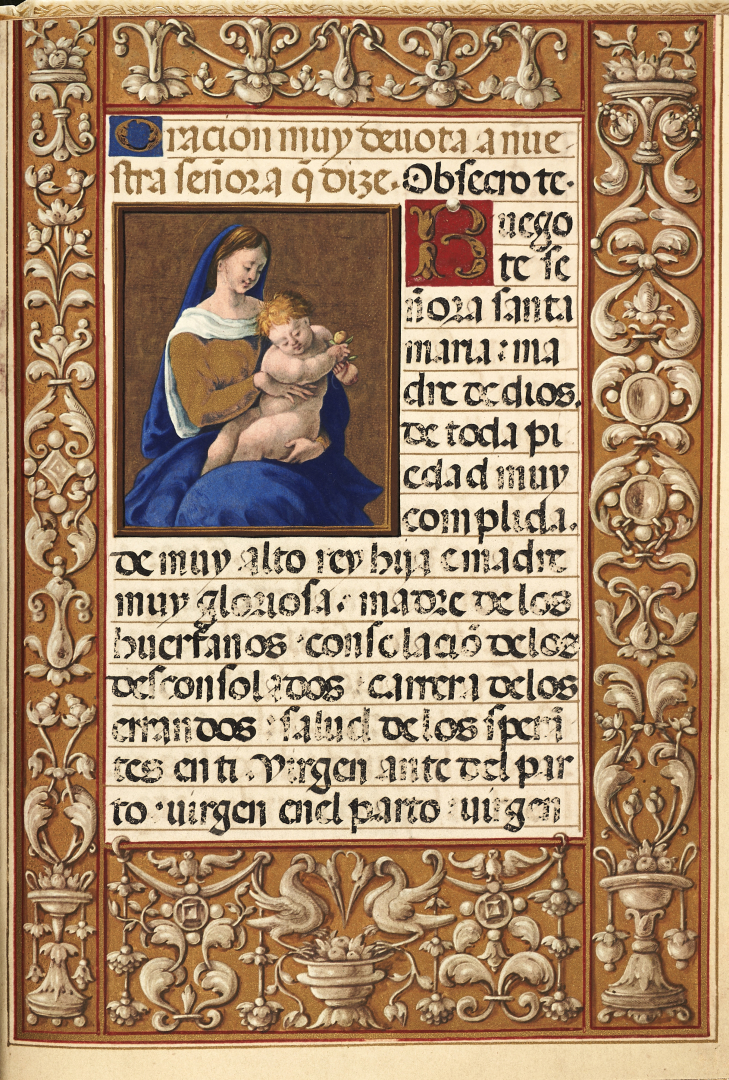 Oracion muy deuota a nue
stra señora q̃ dize. Obsecro te.
Ruego
te se
ñora santa
maria : ma
dre de dios.
de toda pi
edad muy
complida.
de muy alto rey hija e madre
muy gloriosa : madre de los
huerfanos : consolaciõ de los
desconsolados : carrera de los
errandos : salud de los sperã
tes en ti . Virgen ante del par
to : uirgen enel parto : uirgen